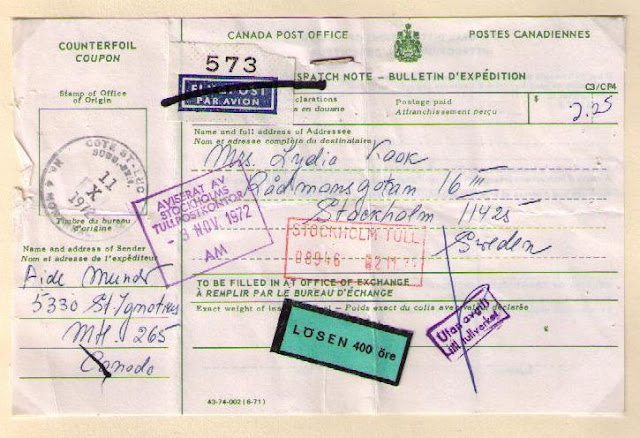 COUNTERFOIL
COUPON
Stamp of Office
of Origin
COTE ST-LUC
11
X
Timbre du bureau
d'origine
Name and address of Sender
Nom et adresse de l'expéditeur
Aide Mundt
5330 St Ignatius
Mtl. 265
Canada
CANADA POST OFFICE
POSTES CANADIENNES
573
PAR AVION
SPATCH NOTE – BULLETIN D'EXPÉDITION
C3/CP4
clarations
en douane
Postage paid
Affranchissement perçu
$
2.25
Name and full address of Addressee
Nom et adresse complète du destinataire
Mrs. Lydia Kook
Rådmansgatan 16 III
Stockholm 11425
Sweden
AVISERAT AV
STOCKHOLMS
TULLPOSTKONTOR
- 3 NOV. 1972
AM
STOCKHOLM TULL
08946 0211
TO BE FILLED IN AT OFFICE OF EXCHANGE
À REMPLIR PAR LE BUREAU D'ÉCHANGE
Exact weight of
Poids exact du colis avec valeur déclarée
LÖSEN 400 öre
Utan avgift
till tullverket
43-74-002 (6-71)